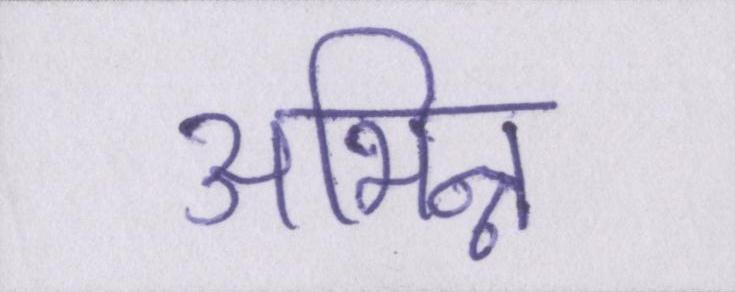 अभिन्न